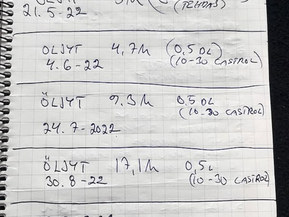 21.5-22 (TEHDAS)
ÖLJYT 4,7h (0,5 DL
4.6-22 (10-30 CASTROL)
ÖLJYT 9.3h 0,5 DL
(10-30 CASTROL)
24.7-2022
ÖLJYT 17,1h 0,5L
30.8-22 (10-30 CASTROL)